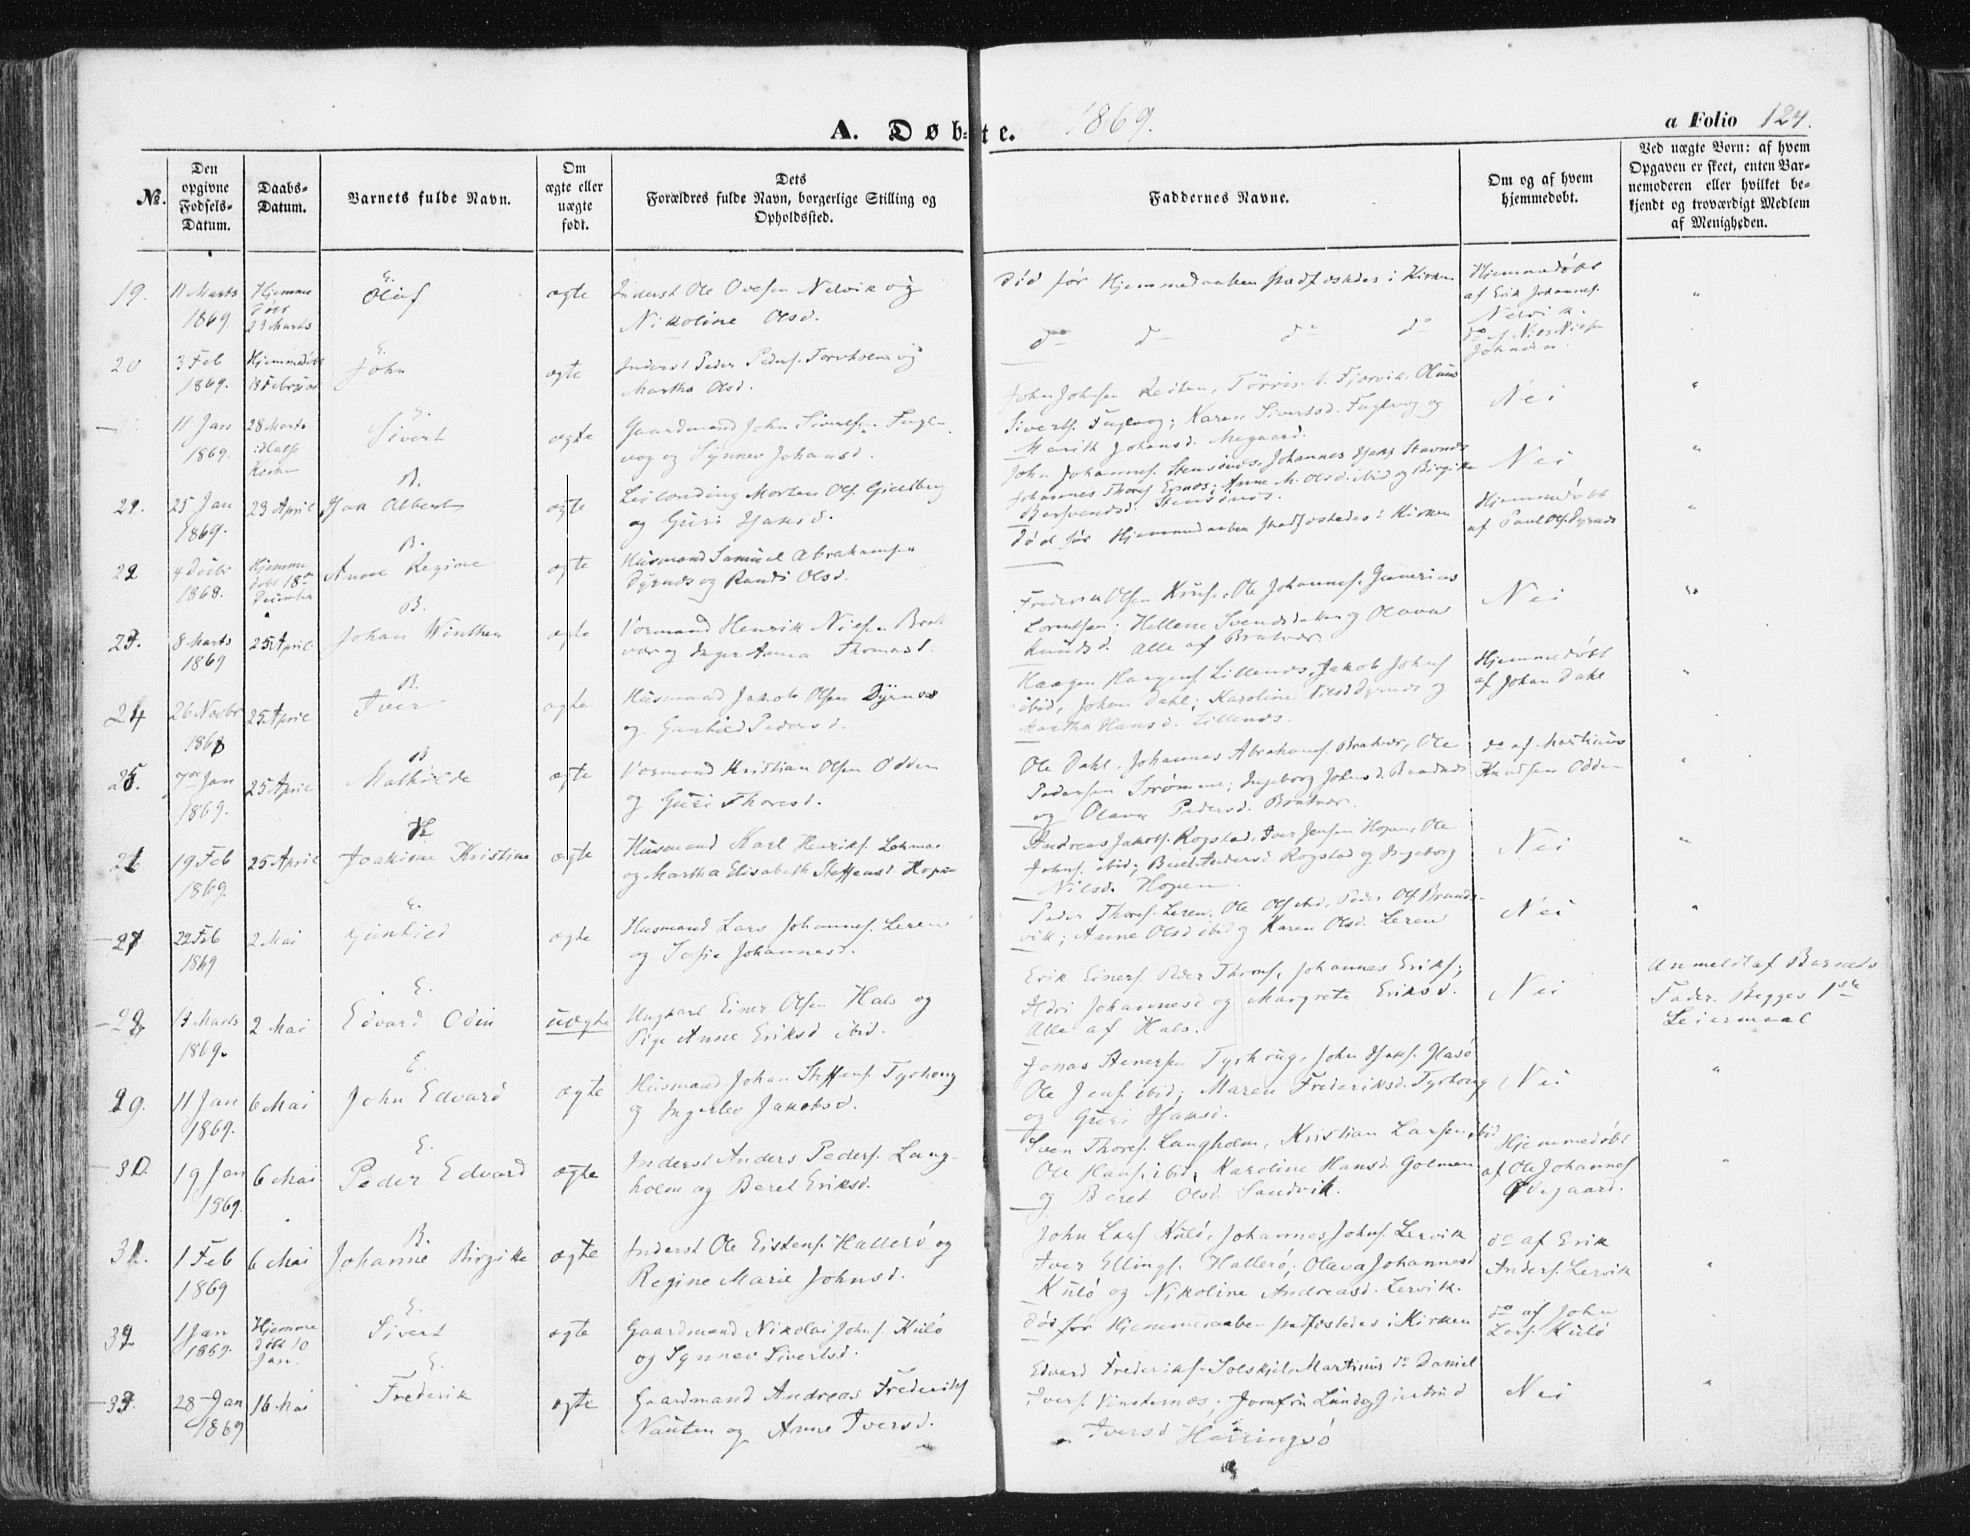 A. Døbte.
1869.
a Folio 124.
№.
Den opgivne Fødsels-Datum.
Daabs-Datum.
Barnets fulde Navn.
Om ægte eller uægte født.
Dets Forældres fulde Navn, borgerlige Stilling og Opholdssted.
Faddernes Navne.
Om og af hvem hjemmedøbt.
Ved uægte Børn: af hvem Opgaven er skeet, enten Barnemoderen eller hvilket bekjendt og troværdigt Medlem af Menigheden.
19. 11 Marts 1869 Hjemme 23 Marts
E. Oluf
ægte
Inderst Ole Ovesen Nelvik og
Nikoline Olsd.
død før Hjemmedaaben stadfæstedes i Kirken
Hjemmedøbt af Erik Johannes. Nelvik.
20 3 Feb 1869. Hjemmedøbt 18 Februar
E. John
ægte
Inderst Peder Peders. Torvholm og
Martha Olsd.
do do do do
do af Nils Nilsen
— 11 Jan 1869. 28 Marts i Halse Kirke
E. Sivert
ægte
Gaardmand John Siverts. Fugl-
vog og Synnev Johansd.
John Johnsen Reiten, Tørris Fjærvik, Oluus
Siverts. Fuglvog; Karen Sivertsd. Fuglvog og
Marith Johansd. Megaard.
Nei
21. 25 Jan 1869. 23 April
B. Jsak Albert
ægte
Leilænding Morten Ols. Gjeldberg
og Guri Isaksd.
John Johannes. Stensønes, Johannes Isaks. Stavnes
Johannes Thores. Ernes; Anne M. Olsd. ibid og Birgitte
Berhvendsd. Stensønes.
Nei
22 4 Decbr 1868. Hjemme døbt 18de December
B. Anne Regine
ægte
Husmand Samuel Abrahamsen
Dyrnæs og Randi Olsd.
død før Hjemmedaaben stadfæstedes i Kirken
Hjemmedøbt af Paul Ols. Dyrnæs
23. 8 Marts 1869 25 April
B. Johan Winther
ægte
Vormand Henrik Nilsen Brat
vær og Inger Anna Thomasd.
Frederik Olsen Kruse, Ole Johannes. Gunerius
Lorentsen; Hellene Svendsdatter og Olava
Knudsd. Alle af Bratvær
Nei
24 26 Novbr 1868 25 April
B. Iver
ægte
Husmand Jakob Olsen Dyrnæs
og Gunhild Pedersd.
Haagen Haagens. Lillenæs, Jakob Johns.
ibid, Johan Dahl; Karoline Nilsd Dyrnæs og
Martha Hansd. Lillenæs.
Hjemmedøbt af Johan Dahl
25. 7de Jan 1869. 25 April
B Mathilde
ægte
Vormand Kristian Olsen Odden
og Guri Thoresd.
Ole Dahl, Johannes Abrahams. Bratvær, Ole
Pedersen Sørømme; Ingeborg Johnsd.
og Olava Pedersd. Bratvær.
do af Martinus Knudsen Odden
26 19 Feb 1869. 25 April
H Joakime Kristine
ægte
Husmand Karl Henriks. Lohmar
og Martha Elisabeth Steffensd. Hopen
Andreas Jakobs. Rogstad, Iver Jensen Hopen, Ole
Johns. ibid; Rogstad og Ingeborg
Nilsd. Hopen
Nei
—27 22 Feb 1869 2 Mai
E. Gunhild
ægte
Husmand Lars Johannes. Leren
og Sofie Johannesd.
Peder Thores. Leren, Ole Ols ibid, Peder Ols Brands-
vik; Anne Olsd ibid og Karen Olsd. Leren
Nei
—28. 13 Marts 1869. 2 Mai
E. Edvard Odin
uægte
Ungkarl Einer Olsen Hals og
Pige Anne Eriksd ibid.
Erik Einers. Peder Thores, Johannes Eriks;
Johannesd og Margrete Eriksd.
Alle af Hals.
Nei
Anmeldt af Barnets
Fader. Begges 1ste
Leiermaal
29. 11 Jan 1869. 6 Mai
E. John Edvard
ægte
Husmand Johan Steffens. Tyrhoug
og Ingerlev Jakobsd.
Jonas Stenersen Tyrhoug, John Isaks. Glasø
Ole Jens. ibid; Maren Frederiksd. Tyrhoug
og Guri Isaksd.
Nei
—30. 19 Jan 1869. 6 Mai
E. Peder Edvard
ægte
Inderst Anders Peders. Lang-
holm og Beret Eriksd.
Sven Thores. Langholm, Kristian Larsen ibid
Ole Hans. ibid; Karoline Hansd. Golmen
og Beret Olsd. Sandvik.
Hjemmedøbt af Ole Johannes Ødegaard.
31. 1 Feb 1869 6 Mai
B. Johanne Birgitte
ægte
Inderst Ole Eistens. Hallerø og
Regine Marie Johnsd.
John Lars Kulø, Johannes Johns. Lervik
Iver Ellings. Hallerø; Olava Johannesd
Kulø og Nikoline Andreasd. Lervik.
do af Erik Anders. Lervik
32 1 Jan 1869. Hjemme døbt 10 Jan.
E. Sivert
ægte
Gaardmand Nikolai Johns. Kulø
og Synnev Sivertsd.
død før Hjemmedaaben stadfæstedes i Kirken
do af John Lars. Kulø
—33. 28 Jan 1869 16 Mai
E. Frederik
ægte
Gaardmand Andreas Frederiks
Nauten og Anne Iversd.
Edvard Frederiks. Solskjel, Martinus do Daniel
Ivers. Vinsternæs; Jomfru Lund og Gjertrud
Iversd Heiringsø
Nei